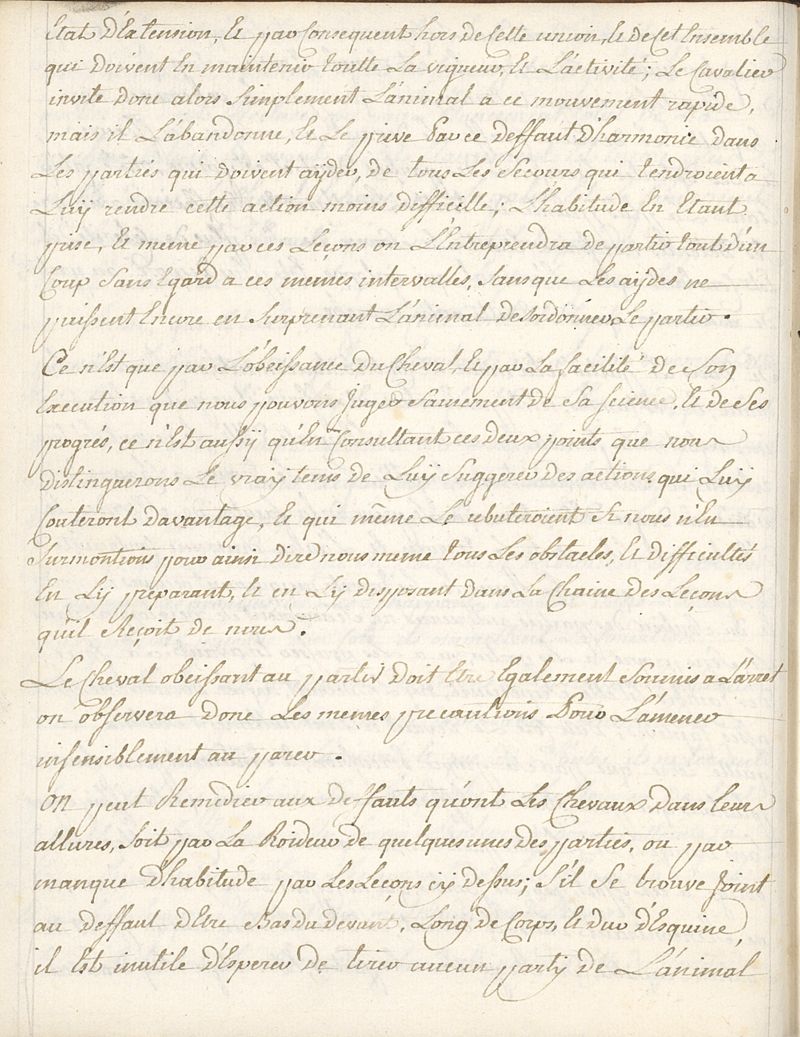 Etat D'Extension, et par Consequent hors de Cette union, et de Cet Ensemble
qui doivent En maintenir toutte La vigueur, et L'activité ; Le Cavalier
invite donc alors simplement L'animal a ce mouvement rapide,
mais il L'abandonne, et Le prive Par ce deffaut D'harmonie dans
Les partiés qui doivent ayder, de tous Les Secours qui tendroient a
Luÿ rendre cette action moins difficille ; L'habitude En Etant
prise, et même par ces Leçons on L'Entreprendra de partir tout d'un
Coup sans Egard a ces mêmes intervalles, sans que Les aÿdes ne
puissent Encore en surprenant L'animal desordonner Le partir.
Ce n'Est que par L'obeissance Du Cheval, et par La facilité de Son
Execution que nous pouvons Juger Sainement de Sa science, et de Ses
progrés, ce n'Est aussÿ qu'En Consultant ces deux points que nous
distinguerons Le vraÿ tems de Luÿ Suggerer des actions qui Luÿ
Couteront davantage, et qui même Le rebuteroient si nous n'En
Surmontions pour ainsi dire nous meme tous Les obstacles, et difficultés
En Lÿ preparant, et en Lÿ disposant dans La Chaine des Leçons
qu'il Reçoit de nous.
Le Cheval obeissant au partir Doit Etre Egalement Soumis a L'arret
on observera donc Les memes precautions Pour L'amener
insensiblement au parer.
On peut Remedier aux deffauts qu'ont Les Chevaux Dans leurs
allures, soit par La Roideur de quelques unes des parties, ou par
manque d'habitude par Les Leçons cÿ dessus ; S'il Se trouve Joint
au deffaut d'Etre Bas du devant, Long de Corps, et Dur d'Esquine,
il Est inutile d'Esperer de tirer aucun partÿ de L'animal